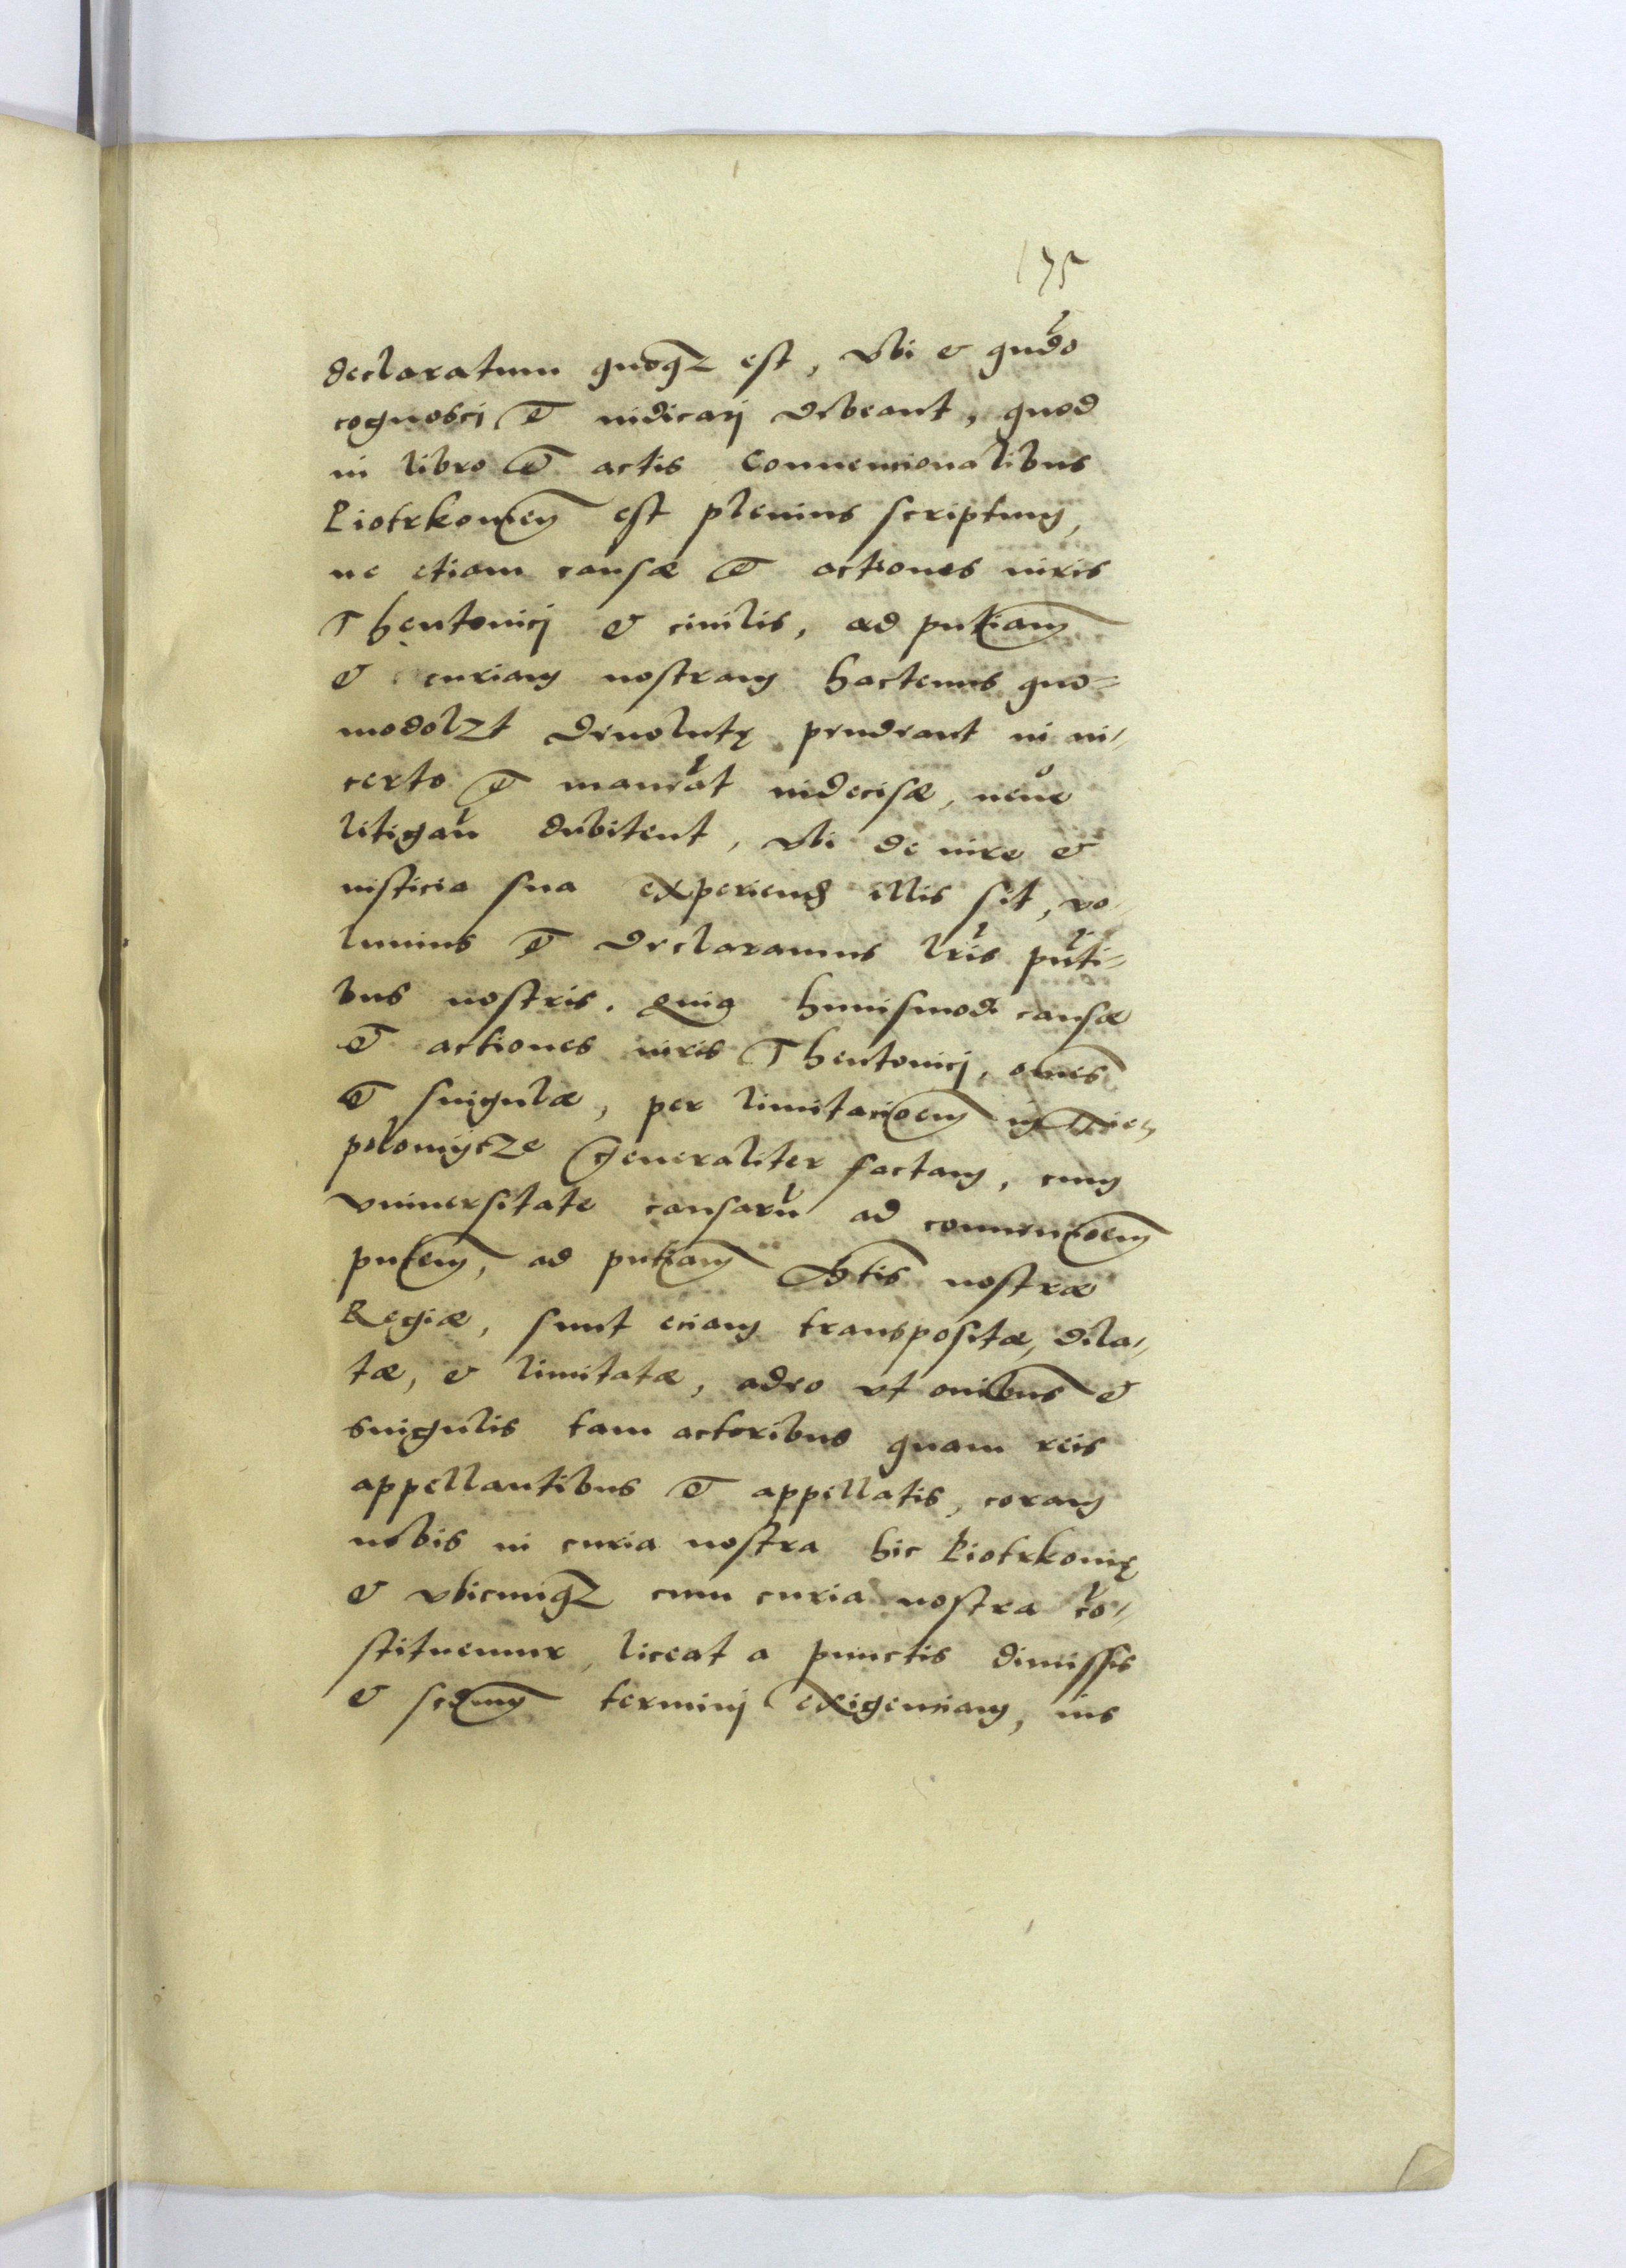 175
declaratum quoqz est, vbi & qndo
cognosci et iudicarj debeant, quod
in libro et actis Conuencionalibus
Piotrkouien est plenius scriptum,
ne etiam causæ et actiones iuris
Theutonicj & ciuilis, ad pntiam
& curiam nostram hactenus quo-
modolzt deuolutę pendeant in in-
certo et maneāt indecisæ, neue
litigan dubitent, vbi de iure &
iusticia sua experiend illis sit, vo-
lumus et declaramus lris pnti-
bus nostris. Quia huiusmodi causæ
et actiones iuris Theutonicj, omes
et singulæ, per limitacioem in Nie-
polomycze generaliter factam, cum
vniuersitate causarū ad conuencioem
pntem, ad pntiam Mtis nostræ
Regiæ, sunt eciam transpositæ, dila-
tæ, & limitatæ, adeo vt omibus &
singulis tam actoribus quam reis
appellantibus et appellatis, coram
nobis in curia nostra hic Piotrkouię
& vbicunqz cum curia nostra co-
stituemur, liceat a punctis dimissis
& scdum terminj exigenciam, ius